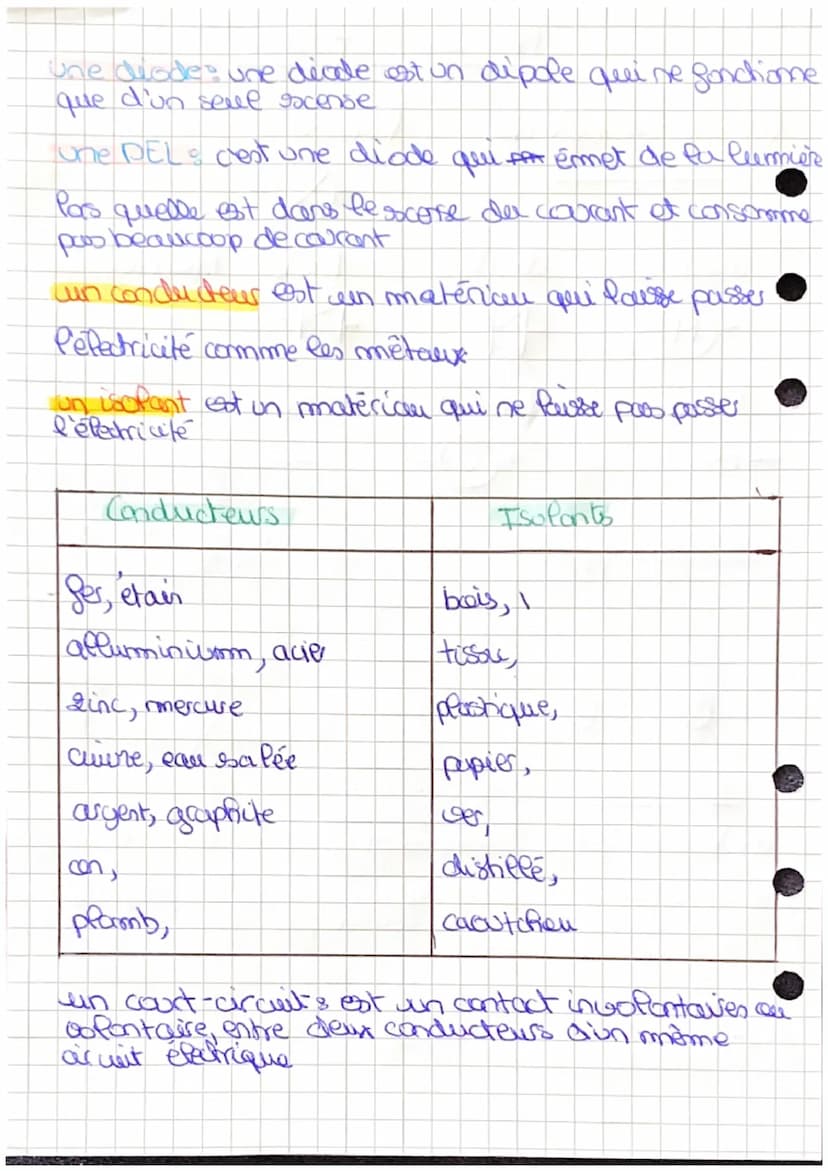 une diode : une diode est un dipole qui ne fonctionne
que d'un seul scense
une DEL : c'est une diode qui émet de la lumière
lors quelle est dans le scense du courant et consomme
pas beaucoup de courant
un conducteur est un matériau qui laisse passer
l'électricité comme les métaux
un isolant est un matériau qui ne laisse pas passer
l'électricité
Conducteurs Isolants
fer, étain bois,
alluminium, acier tissu,
zinc, mercure plastique,
cuivre, eau salée papier,
argent, graphite
distillé,
plomb, caoutchou
un court-circuit : est un contact involontaires ou
volontaire, entre deux conducteurs d'un même
circuit électrique